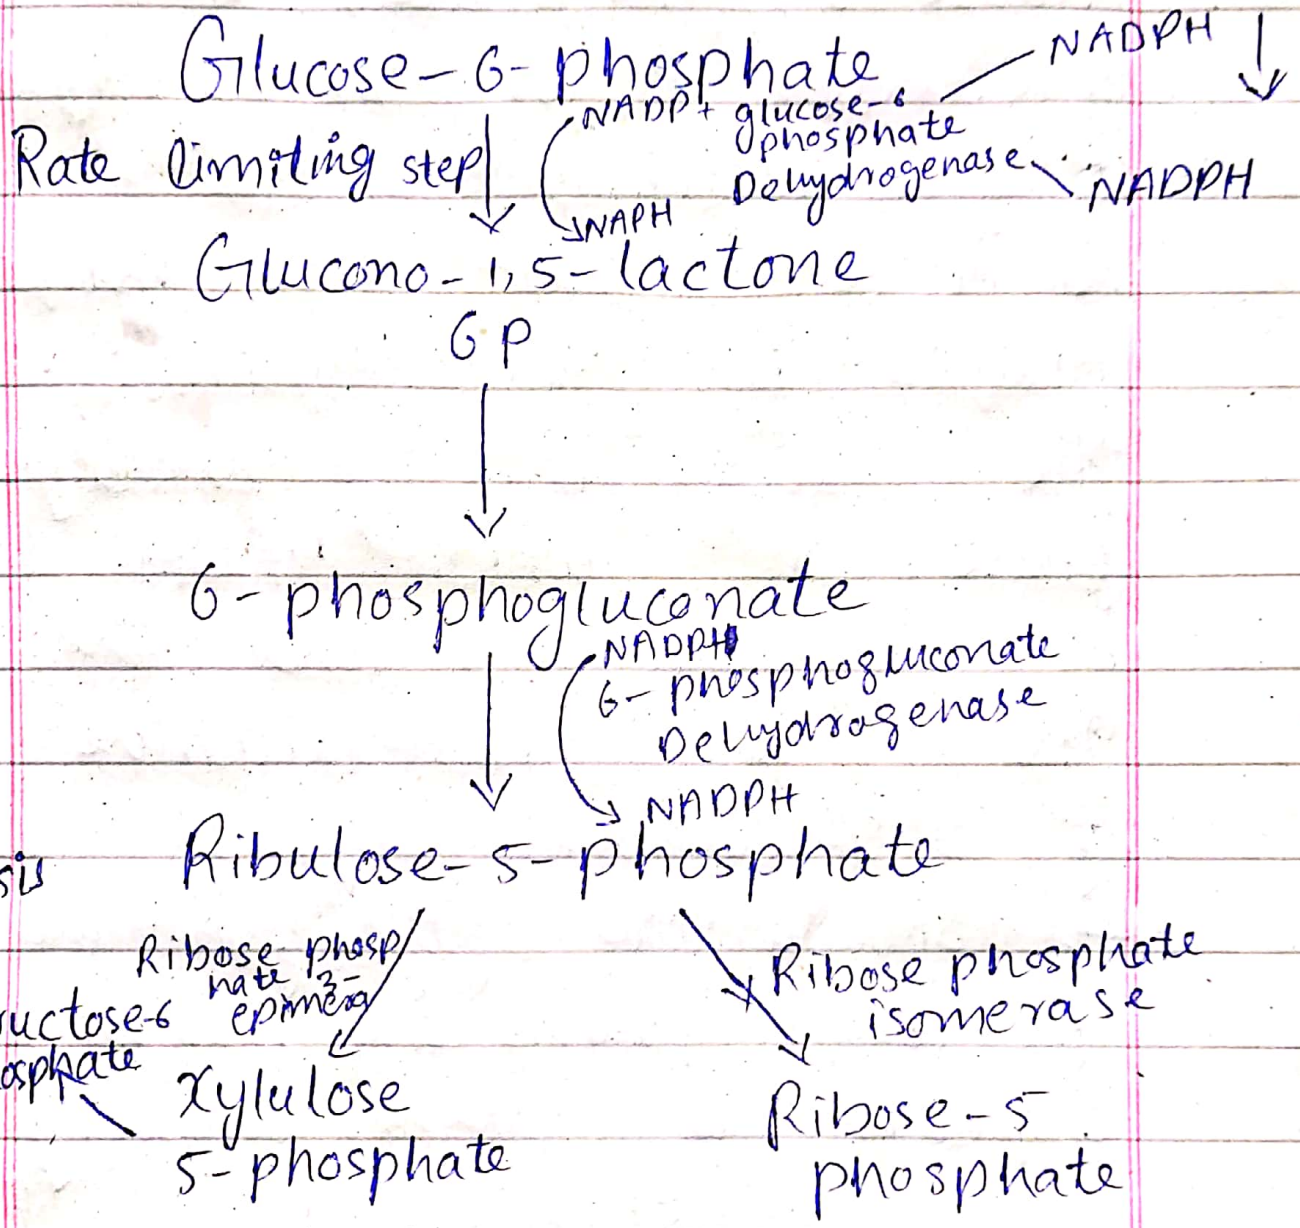 Glucose-6-phosphate
NADPH
NADP+ glucose-6
phosphate
Dehydrogenase
NADPH
Rate limiting step
NAPH
Glucono-1,5-lactone
6P
6-phosphogluconate
NADPH
6-phosphogluconate
Dehydrogenase
NADPH
Ribulose-5-phosphate
sis
Ribose phosp
hate 3-
epimera
Ribose phosphate
isomerase
ructose-6
osphate
Xylulose
5-phosphate
Ribose-5
phosphate